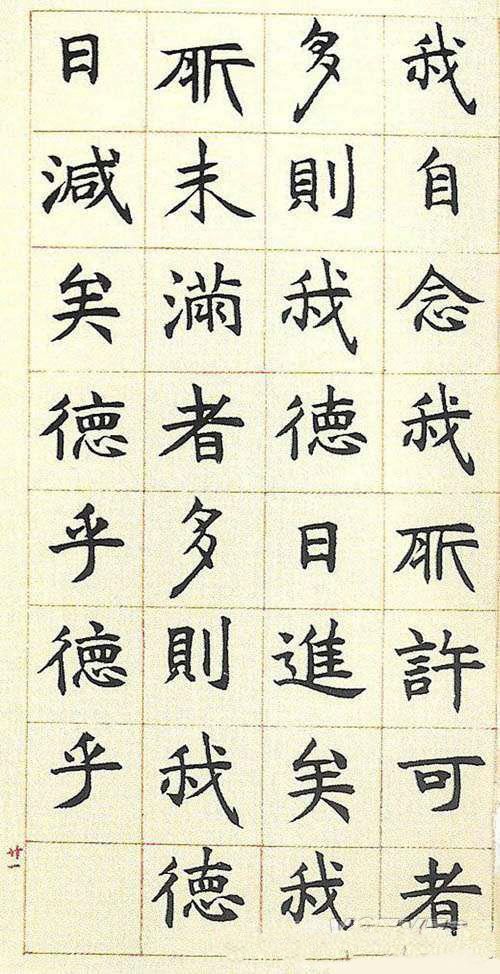 我自念我所許可者
多則我德日進矣我
所未滿者多則我德
日減矣德乎德乎
廿一